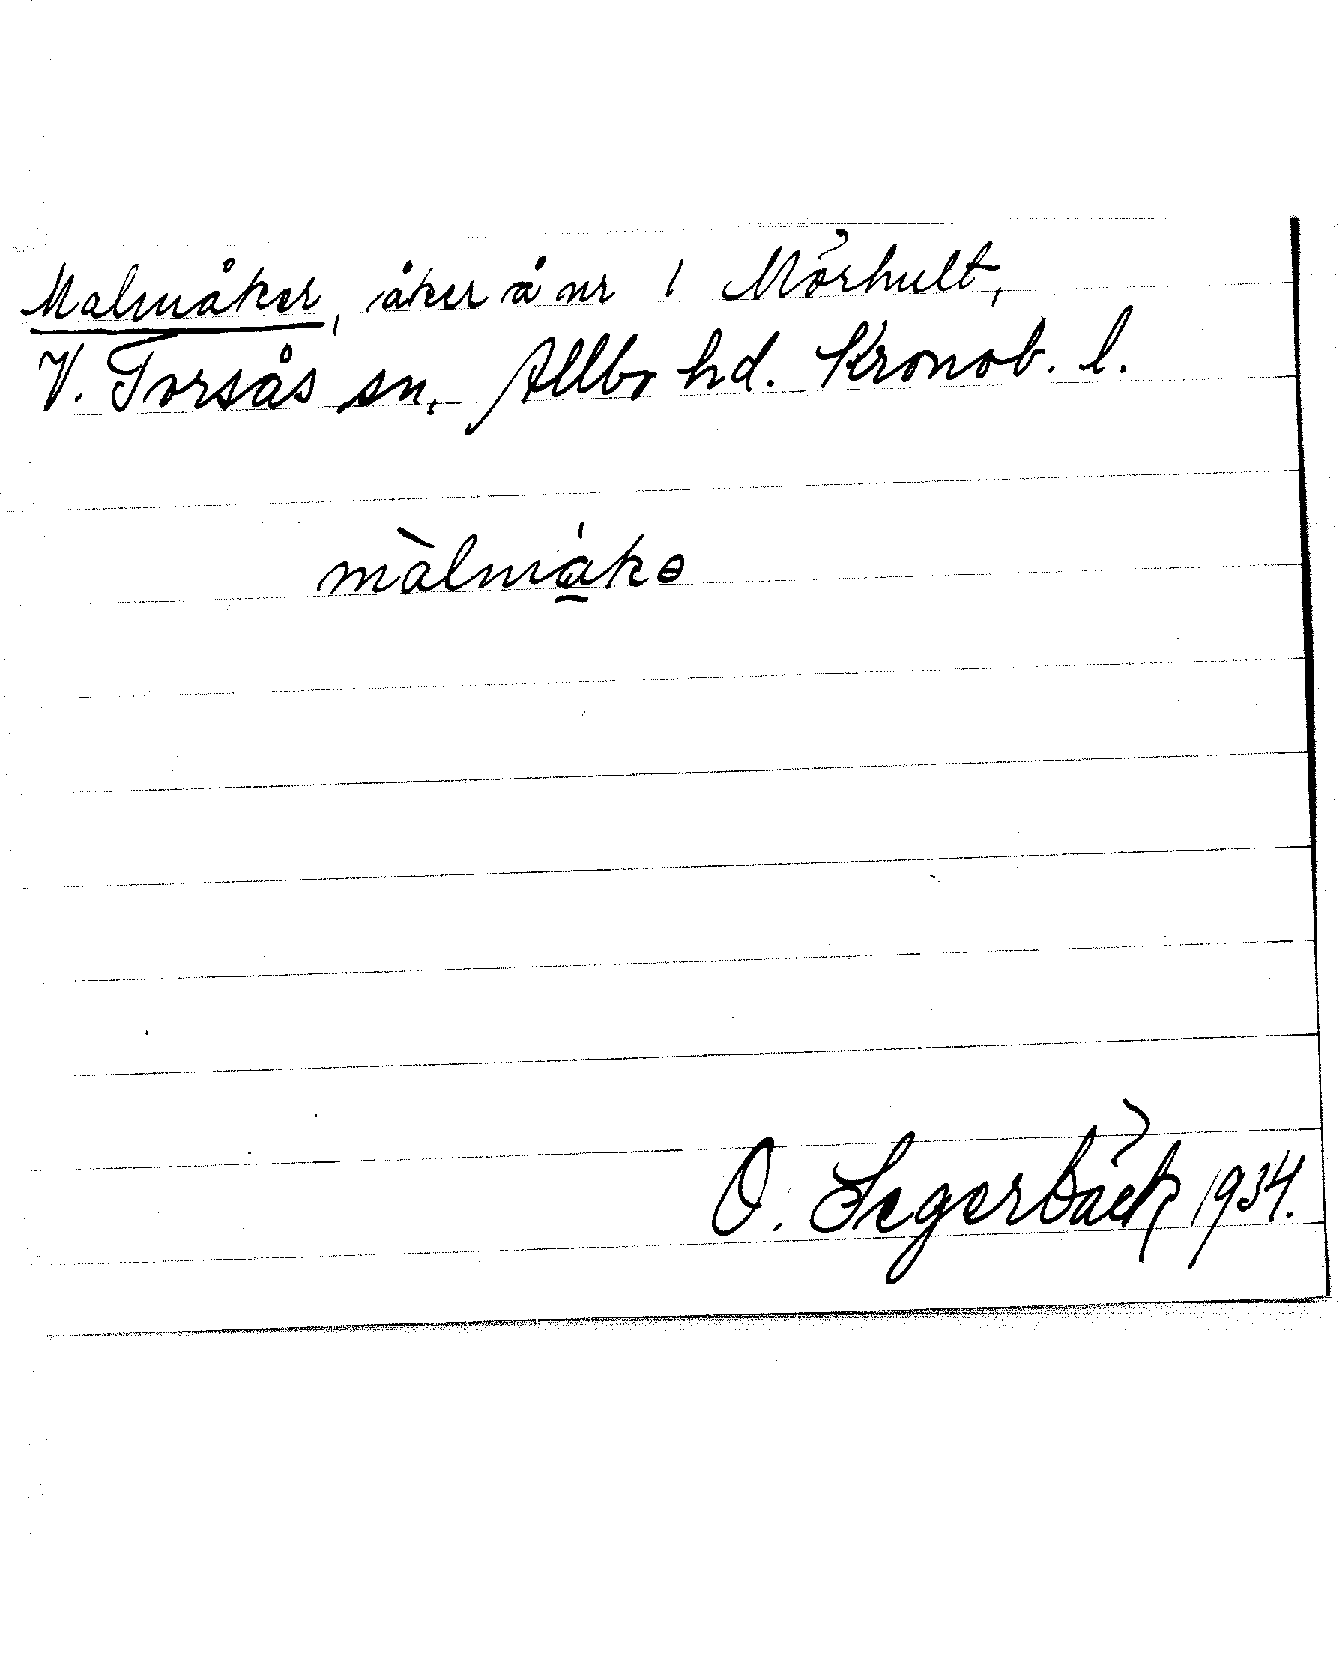 Malmåker, åker å nr 1 Mörhult,
V. Torsås sn, Allbo hd. Kronob. l.
màlmákɵ
O. Segerbäck 1934.